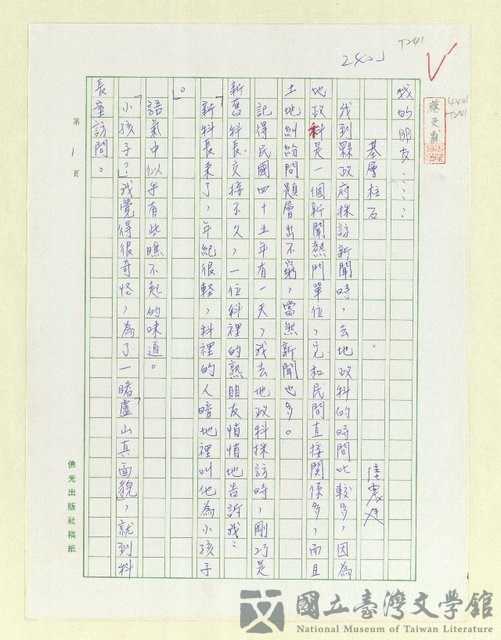 T241
2401
我的朋友……
基層柱石
我到縣政府採訪新聞時，去地政科的時間比較多，因為
地政科是一個新聞熱門單位，它和民間直接關係多，而且
土地糾紛問題層出不窮，當然新聞也多。
記得民國四十五年有一天，我去地政科採訪時，剛巧是
新舊科長交接不久，一位科裡的熟朋友悄悄地告訴我：
「新科長來了，年紀很輕，科裡的人暗地裡叫他為小孩子
。」
語氣中似乎有些瞧不起的味道。
「小孩子？」我覺得很奇怪，為了一睹「盧山真面貌」，就到科
長室訪問。
第1頁
佛光出版社稿紙
國立臺灣文學館
National Museum of Taiwan Literature